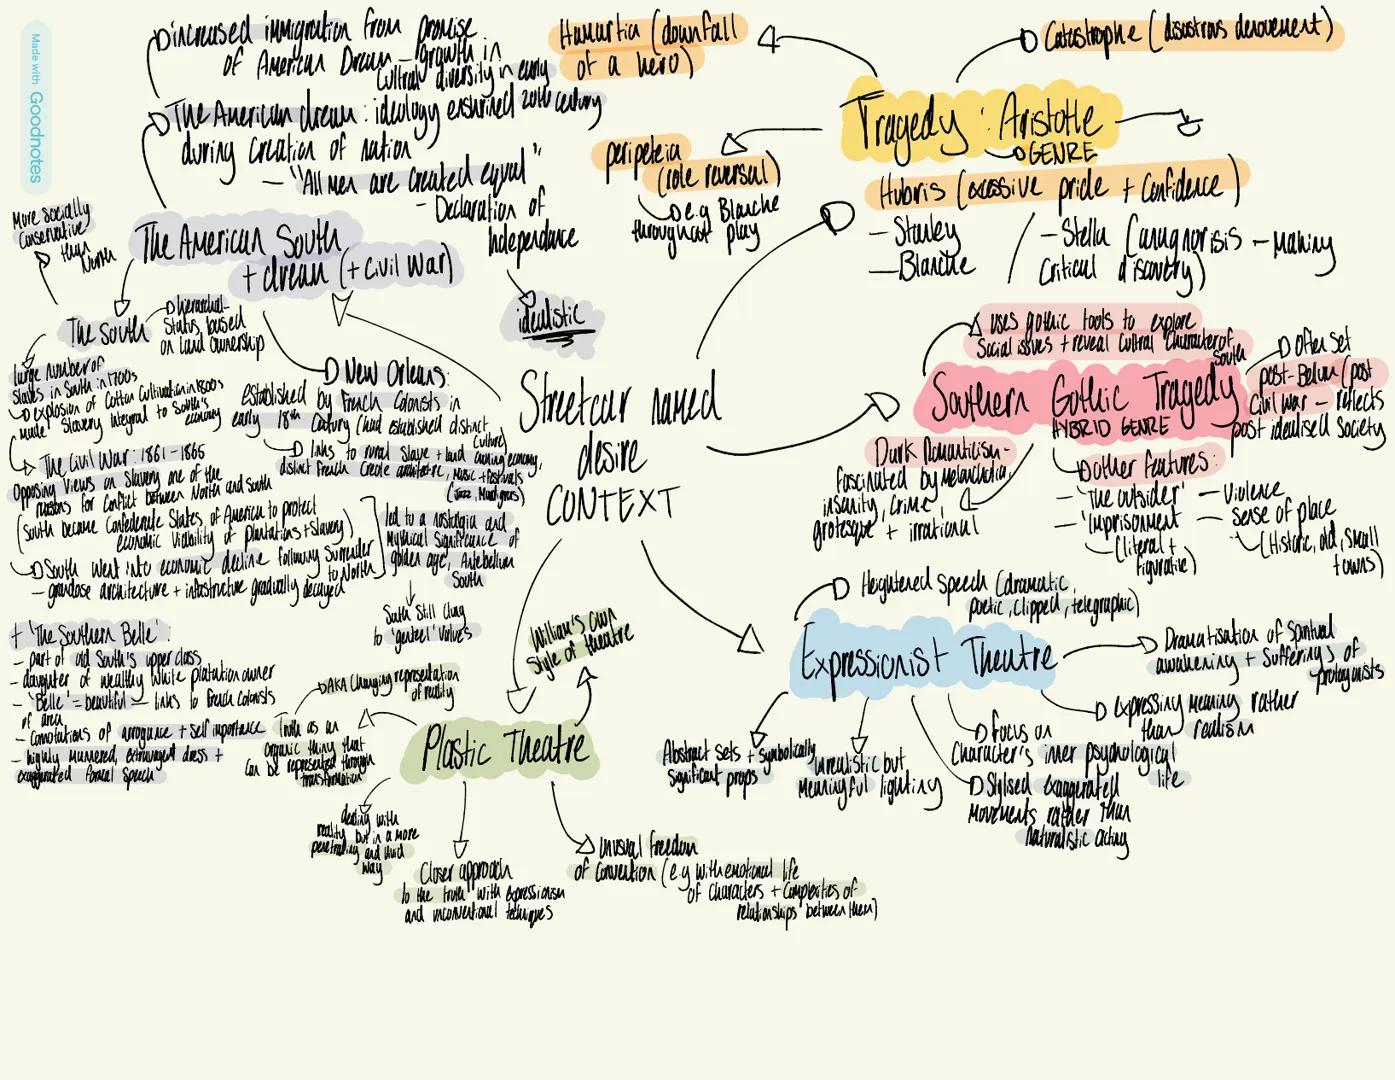 Made with Goodnotes
increased immigration from promise
of American Dream - growth in
cultural diversity in early
20th century
The American dream: ideology enshrined
during creation of nation
- "All men are created equal"
- Declaration of
Independence
idealistic
The American South
+ dream (+ Civil War)
More socially
conservative
than
North
The South
hierarchal -
status, based
on land ownership
large number of
slaves in South in 1700s
explosion of cotton cultivation in 1800s
made slavery integral to South's
economy
The Civil War: 1861-1865
Opposing views on slavery one of the
reasons for conflict between North and South
(South became Confederate States of America to protect
economic viability of plantations + slavery)
South went into economic decline following surrender
to North
- grandose architecture + infastructure gradually decayed
led to a nostalgia and
mythical significance of
golden age, Antebellum
South
South still clung
to 'genteel' values
New Orleans:
established by French colonists in
early 18th century (had established distinct
culture)
links to rural slave + land owning economy,
distinct French Creole architectre, music + festivals
(jazz, Mardi gras)
+ 'The Southern Belle':
- part of old South's upper class
- daughter of wealthy white plantation owner
- 'Belle' = beautiful - links to French colonists
of area
- connotations of arrogance + self importance
- highly mannered, extravagant dress +
exaggerated formal speech
Streetcar named
desire
CONTEXT
Tragedy: Aristotle
GENRE
Hamartia (downfall
of a hero)
Catastrophe (disastrous denovement)
peripeteia
(role reversal)
e.g Blanche
throughout play
Hubris (excessive pride + confidence)
- Stanley
- Blanche
- Stella (anagnorisis - making
critical discovery)
Southern Gothic Tragedy
HYBRID GENRE
uses gothic tools to explore
social issues + reveal cultral character of
South
Often set
post-Bellum (post
Civil war - reflects
post idealised society
Dark Romanticism -
fascinated by melancholia,
insanity, crime,
grotesque + irrational
other features:
- 'The outsider'
- 'imprisonment
(literal +
figurative)
- Violence
- sense of place
(Historic, old, small
towns)
Expressionist Theatre
Heightened speech (dramatic,
poetic, clipped, telegraphic)
Dramatisation of spiritual
awakening + sufferings of
protagonists
expressing meaning rather
than realism
focus on
character's inner psychological
life
Stylised exaggerated
movements rather than
naturalistic acting
unrealistic but
meaningful lighting
Abstract sets + symbolically
significant props
Plastic Theatre
William's own
style of theatre
AKA changing representation
of reality
Truth as an
organic thing that
can be represented through
transformation
dealing with
reality but in a more
penetrating and vivid
way
Closer approach
to the truth with expressionism
and unconventional techniques
unusual freedom
of convention (e.g with emotional life
of characters + complexities of
relationships between them)